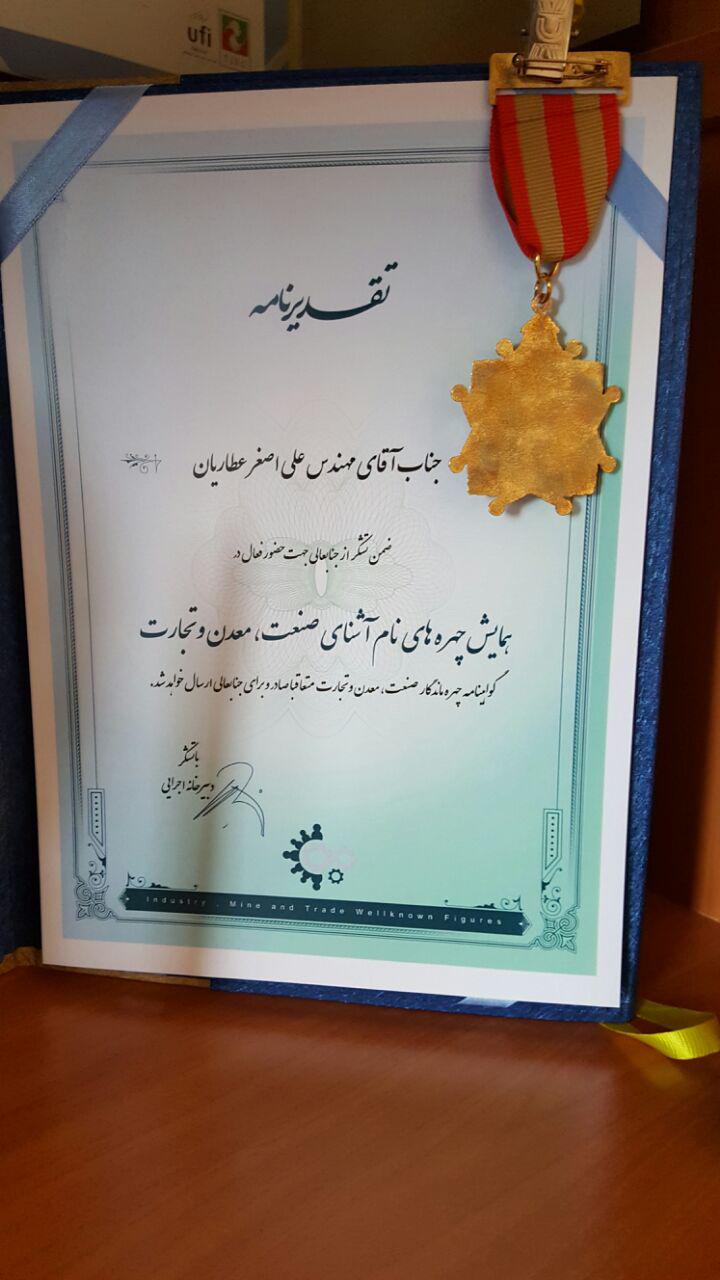 ufi
تقدیرنامه
جناب آقای مهندس علی اصغر عطاریان
ضمن تشکر از جنابعالی جهت حضور فعال در
همایش چهره های نام آشنای صنعت، معدن و تجارت
گواهینامه چهره ماندگار صنعت، معدن و تجارت متعاقبا صادر و برای جنابعالی ارسال خواهد شد.
با تشکر
دبیرخانه اجرایی
Industry . Mine and Trade Wellknown Figures